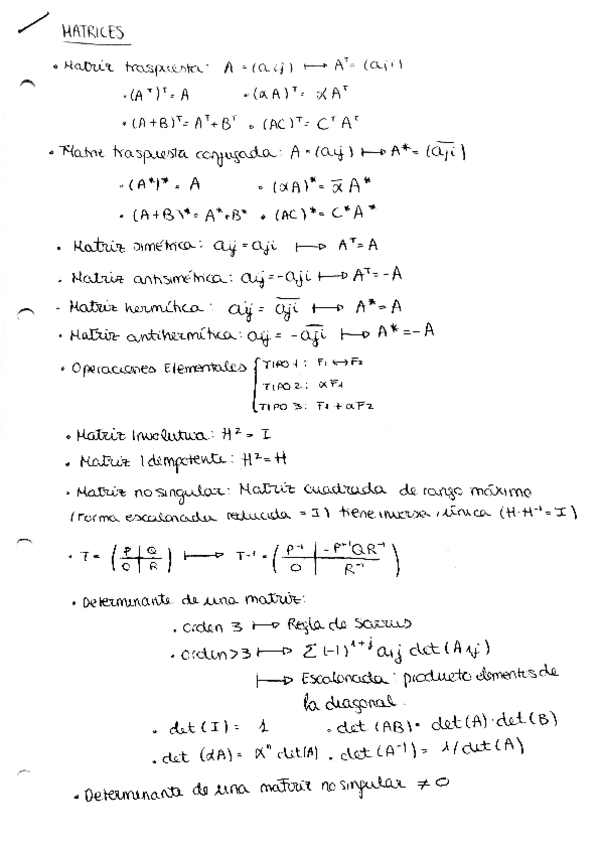 MATRICES
• Matriz traspuesta: A = (aij) ↦ Aᵀ = (aji)
• (Aᵀ)ᵀ = A • (αA)ᵀ = αAᵀ
• (A+B)ᵀ = Aᵀ+Bᵀ • (AC)ᵀ = CᵀAᵀ
• Matriz traspuesta conjugada: A = (aij) ↦ A* = (a̅j̅i̅)
• (A*)* = A • (αA)* = α̅ A*
• (A+B)* = A*+B* • (AC)* = C*A*
• Matriz simétrica: aij = aji ↦ Aᵀ=A
• Matriz antisimétrica: aij = -aji ↦ Aᵀ=-A
- Matriz hermítica: aij = a̅j̅i̅ ↦ A*=A
• Matriz antihermítica: aij = -a̅j̅i̅ ↦ A*=-A
• Operaciones Elementales { TIPO 1: F₁ ↔ F₂
TIPO 2: αF₁
TIPO 3: F₁ + αF₂
• Matriz Involutiva: H² = I
• Matriz Idempotente: H² = H
• Matriz no singular: Matriz cuadrada de rango máximo
(forma escalonada reducida = I) tiene inversa, única (H·H⁻¹ = I)
• T = (P | Q / O | R) ↦ T⁻¹ = (P⁻¹ | -P⁻¹QR⁻¹ / O | R⁻¹)
• Determinante de una matriz:
• Orden 3 ↦ Regla de Sarrus
• Orden>3 ↦ Σ (-1)ⁱ⁺ʲ aij det(Aij)
↦ Escalonada: producto elementos de
la diagonal.
• det(I) = 1 • det(AB) = det(A)·det(B)
• det(αA) = αⁿ det(A) • det(A⁻¹) = 1/det(A)
• Determinante de una matriz no singular ≠ 0